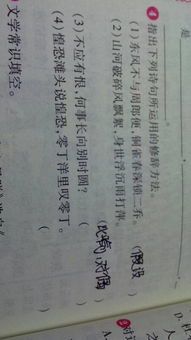 是
4 指出下列诗句所运用的修辞方法。
(1)东风不与周郎便,铜雀春深锁二乔。
(假设)
(2)山河破碎风飘絮,身世浮沉雨打萍。
(比喻,对偶)
(3)不应有恨,何事长向别时圆?( )
(4)惶恐滩头说惶恐,零丁洋里叹零丁。
( )
文学常识填空。